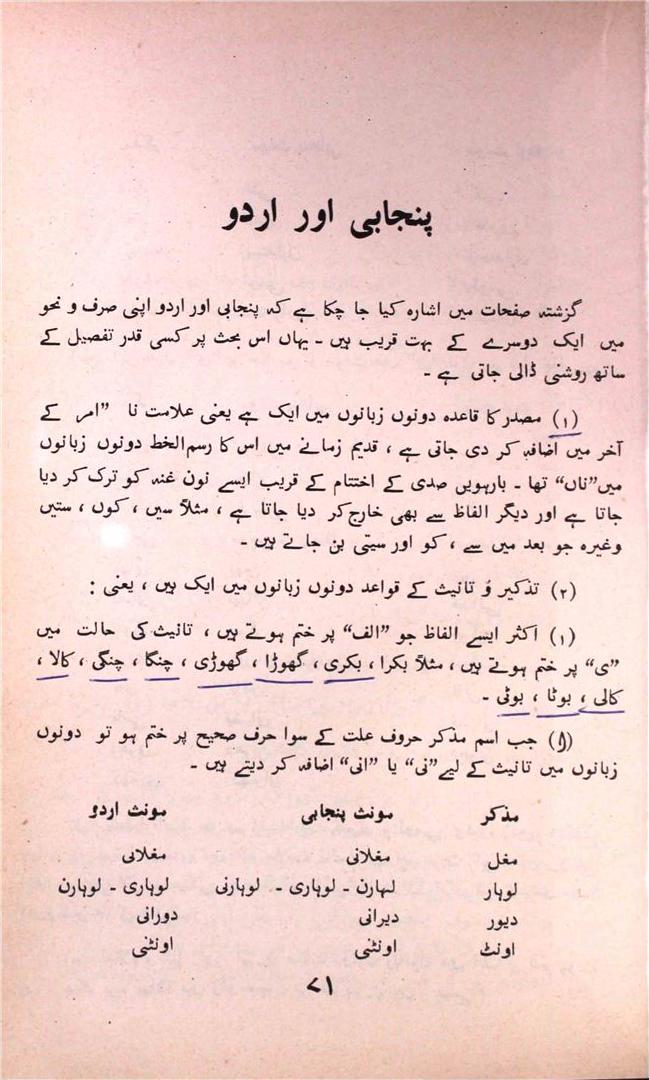 پنجابی اور اردو
گزشتہ صفحات میں اشارہ کیا جا چکا ہے کہ پنجابی اور اردو اپنی صرف و نحو
میں ایک دوسرے کے بہت قریب ہیں ۔ یہاں اس بحث پر کسی قدر تفصیل کے
ساتھ روشنی ڈالی جاتی ہے ۔
(۱) مصدر کا قاعدہ دونوں زبانوں میں ایک ہے یعنی علامت نا ”امر کے
آخر میں اضافہ کر دی جاتی ہے ، قدیم زمانے میں اس کا رسم الخط دونوں زبانوں
میں ”ناں“ تھا ۔ بارہویں صدی کے اختتام کے قریب ایسے نون غنہ کو ترک کر دیا
جاتا ہے اور دیگر الفاظ سے بھی خارج کر دیا جاتا ہے ، مثلاً سیں ، کوں ، ستیں
وغیرہ جو بعد میں سے ، کو اور سیتی بن جاتے ہیں ۔
(۲) تذکیر و تانیث کے قواعد دونوں زبانوں میں ایک ہیں ، یعنی :
(۱) اکثر ایسے الفاظ جو ”الف“ پر ختم ہوتے ہیں ، تانیث کی حالت میں
”ی“ پر ختم ہوتے ہیں ، مثلاً بکرا ، بکری ، گھوڑا ، گھوڑی ، چنگا ، چنگی ، کالا ،
کالی ، بوٹا ، بوٹی ۔
جب اسم مذکر حروف علت کے سوا حرف صحیح پر ختم ہو تو دونوں
زبانوں میں تانیث کے لیے ”نی“ یا ”انی“ اضافہ کر دیتے ہیں ۔
مذکر مونث پنجابی مونث اردو
مغل مغلانی مغلانی
لوہار لہارن ۔ لوہاری ۔ لوہارنی لوہاری ۔ لوہارن
دیور دیرانی دورانی
اونٹ اونٹنی اونٹنی
۷۱